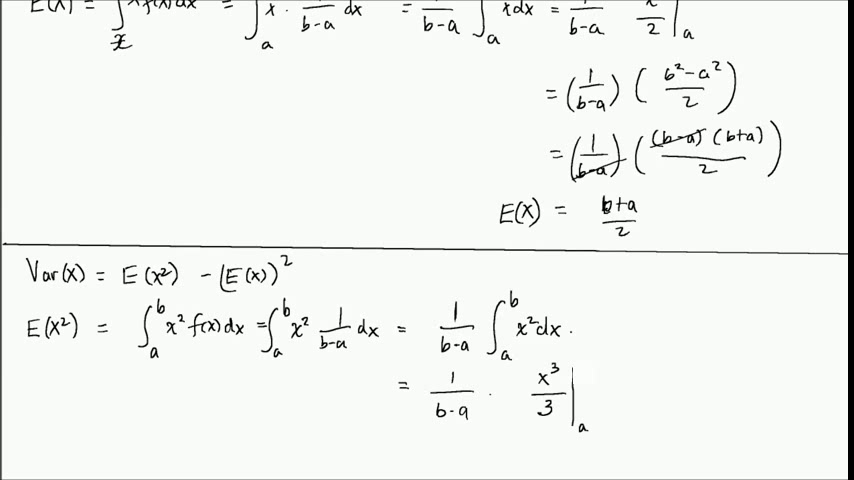 E(X) = ∫ x f(x) dx = ∫_a x · 1/(b-a) dx = 1/(b-a) ∫_a x dx = 1/(b-a) x/2 |_a
= (1/(b-a)) ((b²-a²)/2)
= (1/(b-a)) ((b-a)(b+a)/2)
E(X) = (b+a)/2
Var(X) = E(X²) - (E(X))²
E(X²) = ∫_a^b x² f(x) dx = ∫_a^b x² 1/(b-a) dx = 1/(b-a) ∫_a^b x² dx .
= 1/(b-a) · x³/3 |_a